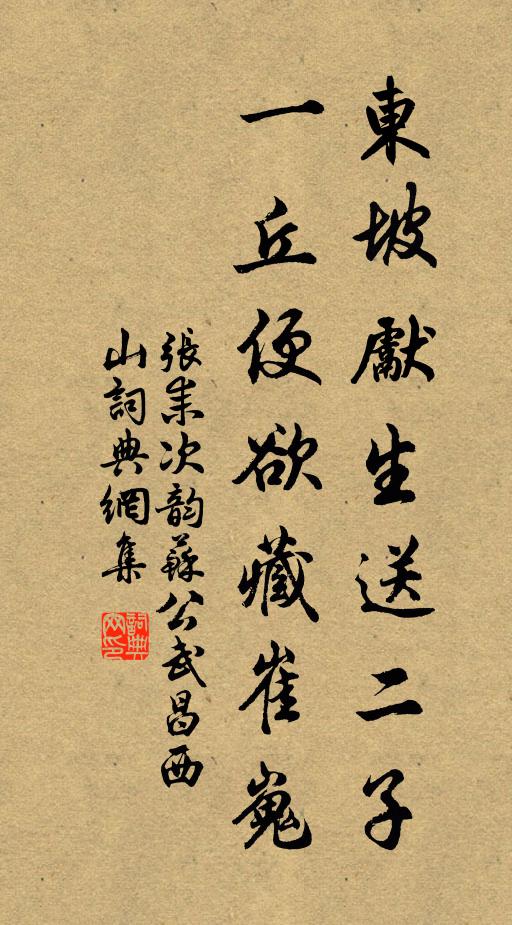 東坡獻生送二子
一丘便欲藏崔嵬
張耒次韵蘇公武昌西
山詞典網集
詞典网印